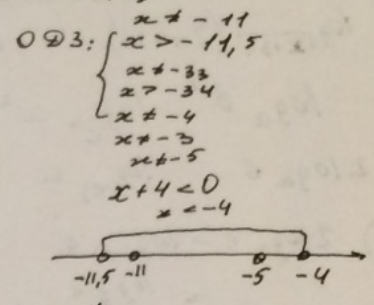 x ≠ -11
ОДЗ: { x > -11,5
x ≠ -33
x > -34
x ≠ -4
x ≠ -3
x ≠ -5
x + 4 < 0
x < -4
-11,5 -11 -5 -4